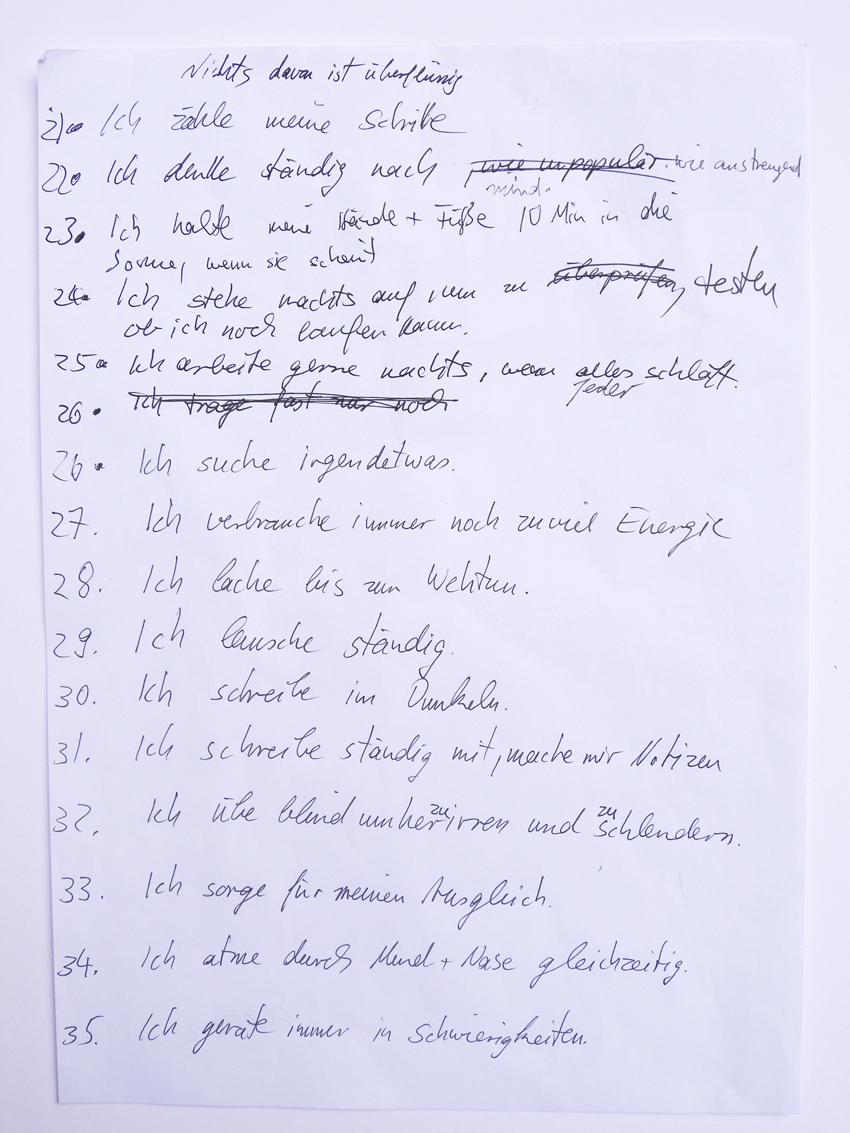 Nichts davon ist überflüssig
21. Ich zähle meine Schritte
22. Ich denke ständig nach, wie unpopulär. wie anstrengend
mind.
23. Ich halte meine Hände + Füße 10 Min in die
Sonne, wenn sie scheint
24. Ich stehe nachts auf, um zu überprüfen, testen
ob ich noch laufen kann.
25. Ich arbeite gerne nachts, wenn alles schläft.
jeder
26. Ich trage fast nur noch
26. Ich suche irgendetwas.
27. Ich verbrauche immer noch zuviel Energie
28. Ich lache bis zum Wehtun.
29. Ich lausche ständig.
30. Ich schreibe im Dunkeln.
31. Ich schreibe ständig mit, mache mir Notizen
32. Ich übe blind umherzuirren und zu schlendern.
33. Ich sorge für meinen Ausgleich.
34. Ich atme durch Mund + Nase gleichzeitig.
35. Ich gerate immer in Schwierigkeiten.